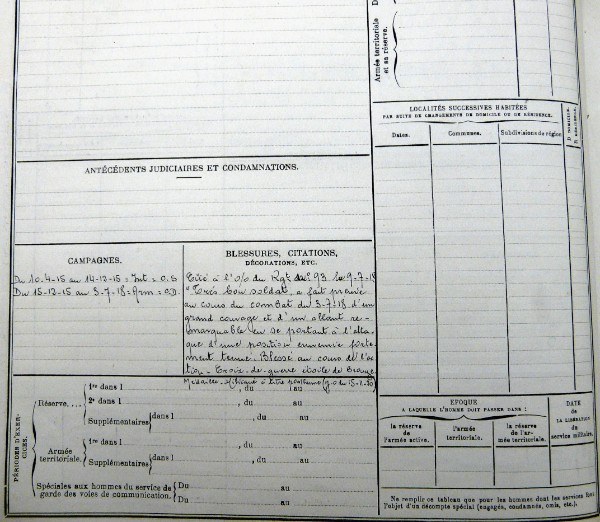 Armée territoriale
et sa réserve.
D
LOCALITÉS SUCCESSIVES HABITÉES
PAR SUITE DE CHANGEMENTS DE DOMICILE OU DE RÉSIDENCE.
Dates.
Communes.
Subdivisions de région
D DOMICILE.
R RÉSIDENCE.
ANTÉCÉDENTS JUDICIAIRES ET CONDAMNATIONS.
CAMPAGNES.
Du 10-4-15 au 14-12-15 = Int = C.S
Du 15-12-15 au 3-7-18 = Arm = C.D.
BLESSURES, CITATIONS,
DÉCORATIONS, ETC.
Cité à l'O/ du Rgt 93 le 9-7-18
"Très bon soldat, a fait preuve
au cours du combat du 3-7-18 d'un
grand courage et d'un allant re-
marquable en se portant à l'atta-
que d'une position ennemie forte-
ment tenue. Blessé au cours de l'ac-
tion - Croix de guerre étoile de bronze
Médaille Militaire à titre posthume (J.O. du 15-2-20)
PÉRIODES D'EXER-
CICES.
Réserve....
1re dans l , du au .
2e dans l , du au .
Supplémentaires dans l , du au .
Armée
territoriale.
1re dans l , du au .
Supplémentaires dans l , du au .
Spéciales aux hommes du service de
garde des voies de communication.
Du au
Du au
EPOQUE
A LAQUELLE L'HOMME DOIT PASSER DANS :
la réserve
de
l'armée active.
l'armée
territoriale.
la réserve
de l'ar-
mée territoriale.
DATE
de
LA LIBÉRATION
du
service militaire.
Ne remplir ce tableau que pour les hommes dont les services font
l'objet d'un décompte spécial (engagés, condamnés, omis, etc.).